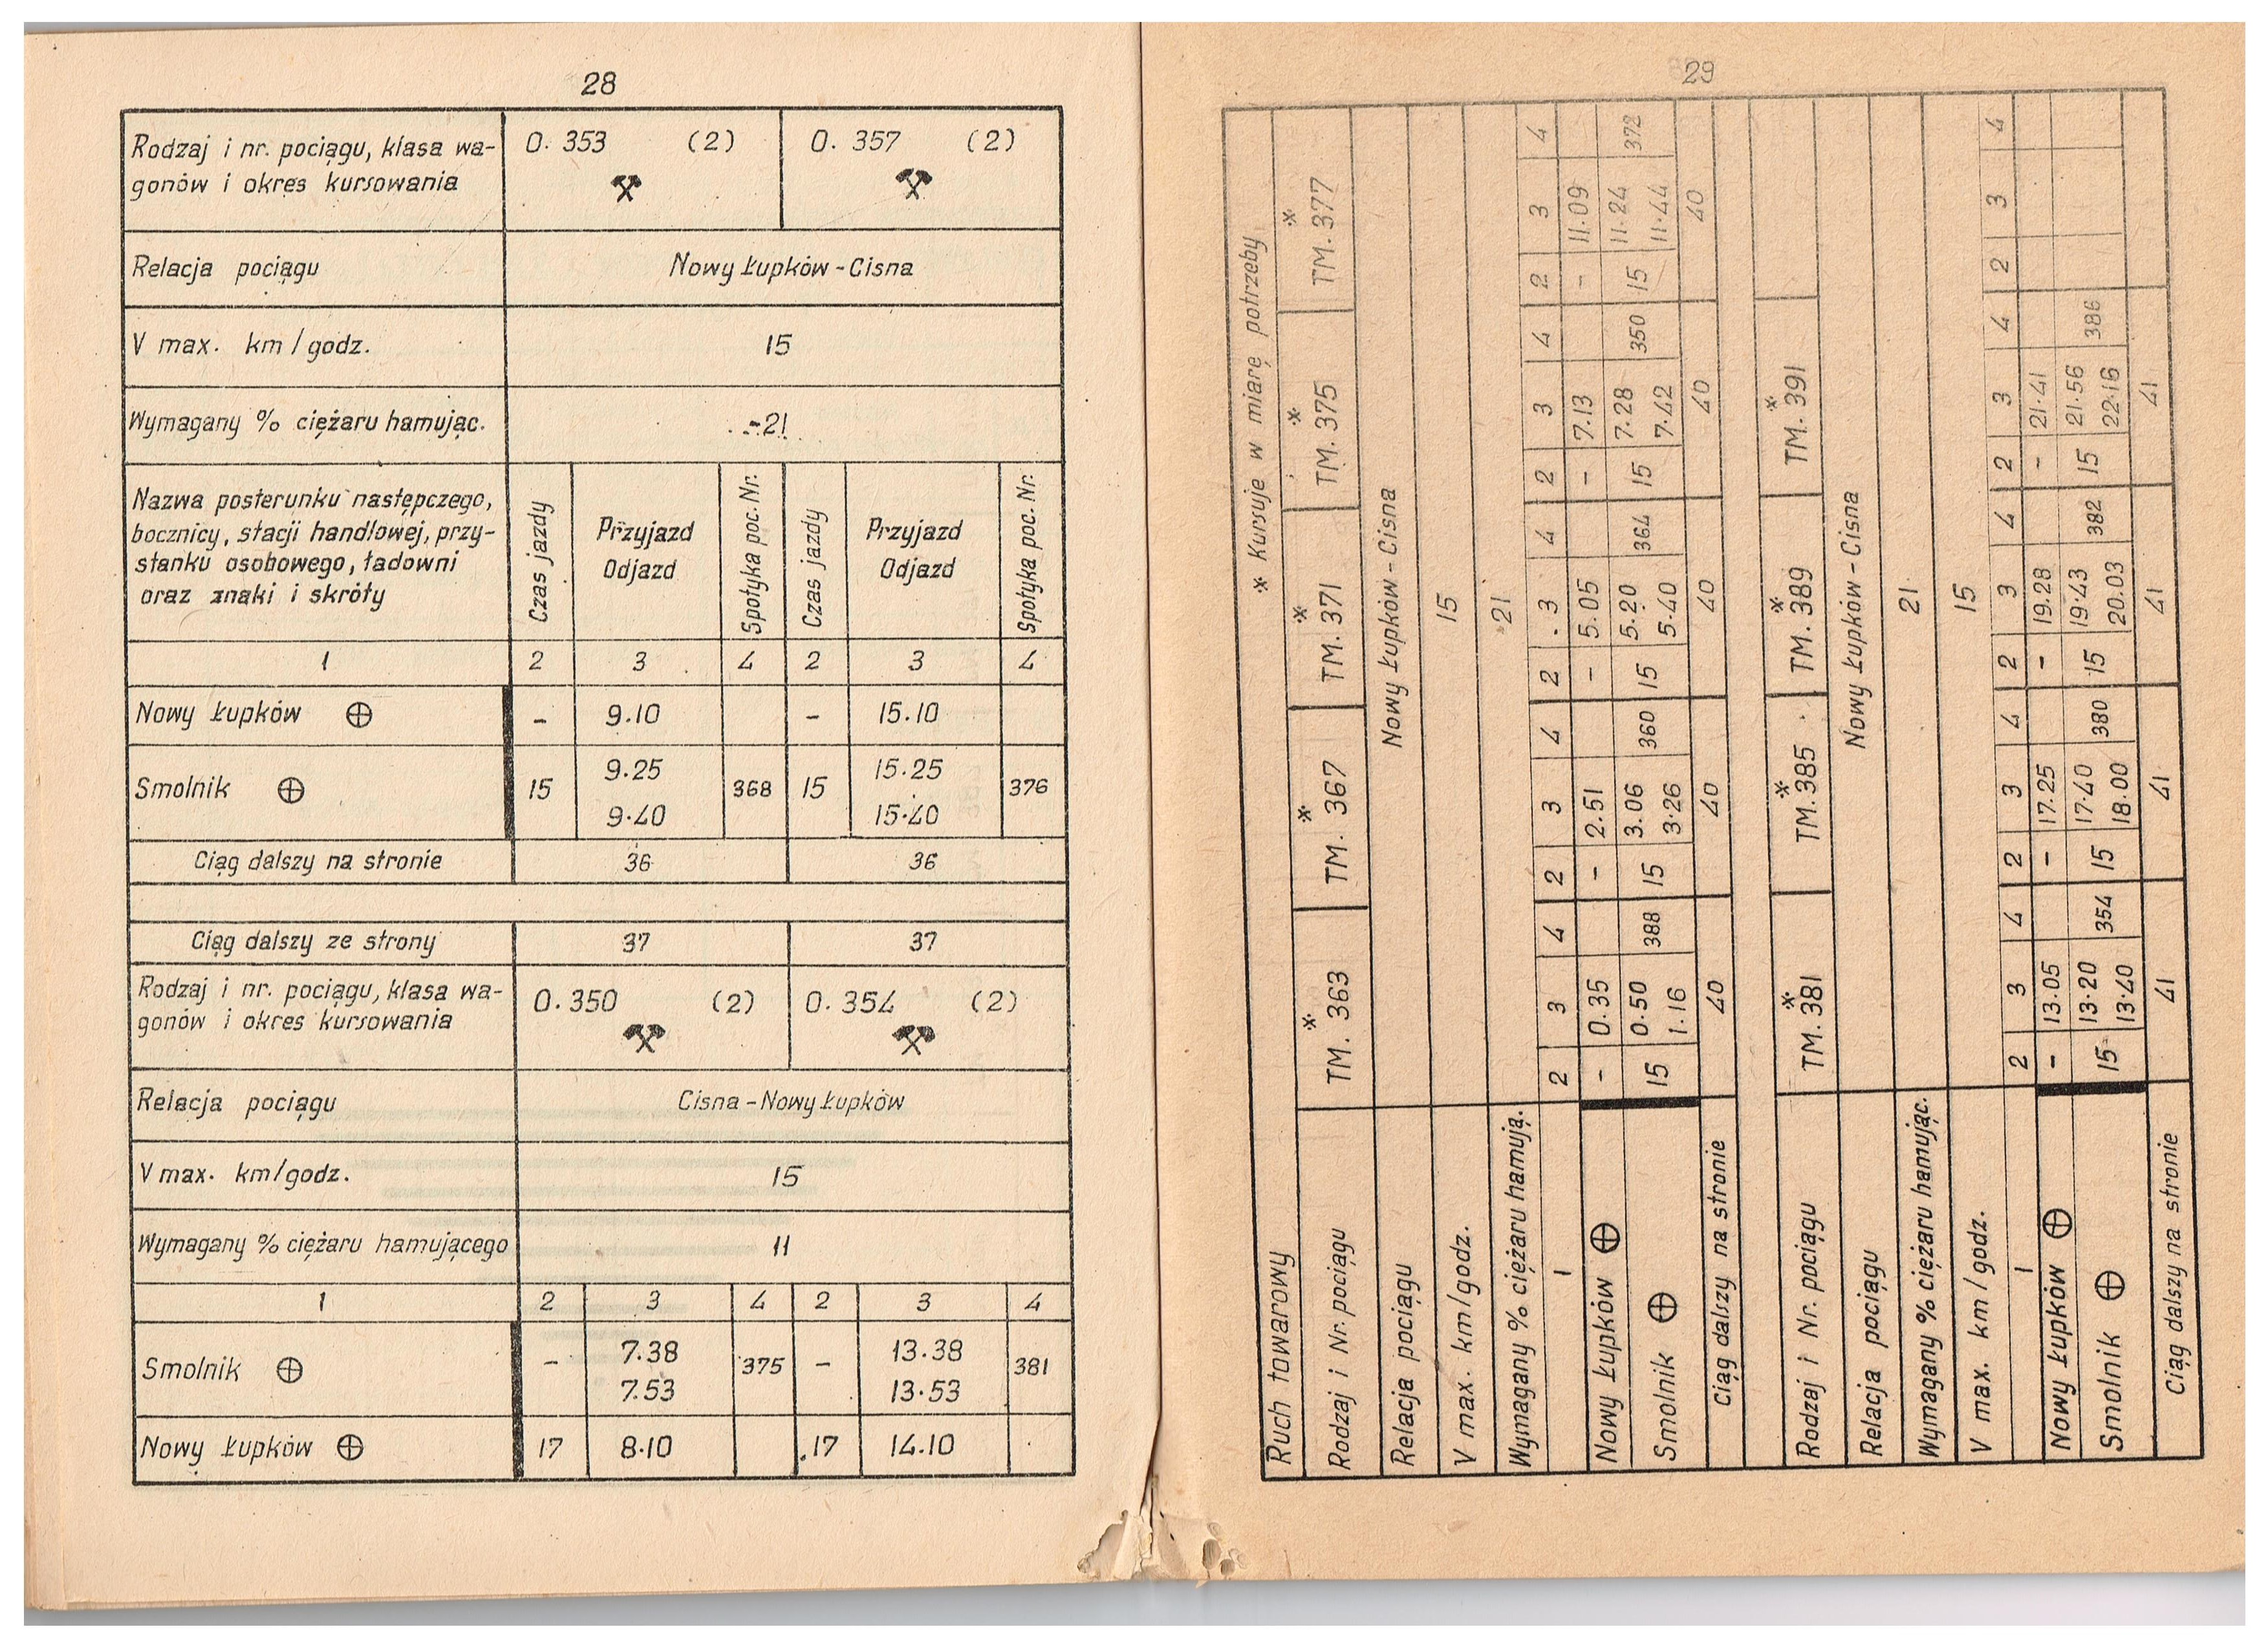 28
Rodzaj i nr. pociągu, klasa wa- O. 353 (2) O. 357 (2)
gonów i okres kursowania
Relacja pociągu Nowy Łupków - Cisna
V max. km / godz. 15
Wymagany % ciężaru hamując. - 21
Nazwa posterunku następczego,
bocznicy, stacji handlowej, przy-
stanku osobowego, ładowni
oraz znaki i skróty
Czas jazdy
Przyjazd
Odjazd
Spotyka poc. Nr.
Czas jazdy
Przyjazd
Odjazd
Spotyka poc. Nr.
1 2 3 4 2 3 4
Nowy Łupków ⊕ - 9.10 - 15.10
Smolnik ⊕ 15 9.25 368 15 15.25 376
9.40 15.40
Ciąg dalszy na stronie 36 36
Ciąg dalszy ze strony 37 37
Rodzaj i nr. pociągu, klasa wa- O. 350 (2) O. 354 (2)
gonów i okres kursowania
Relacja pociągu Cisna - Nowy Łupków
V max. km/godz. 15
Wymagany % ciężaru hamującego 11
1 2 3 4 2 3 4
Smolnik ⊕ - 7.38 375 - 13.38 381
7.53 13.53
Nowy Łupków ⊕ 17 8.10 17 14.10
29
Ruch towarowy * Kursuje w miarę potrzeby
Rodzaj i Nr. pociągu TM. 363 * TM. 367 * TM. 371 * TM. 375 * TM. 377 *
Relacja pociągu Nowy Łupków - Cisna
V max. km/godz. 15
Wymagany % ciężaru hamują. 21
1 2 3 4 2 3 4 2 3 4 2 3 4 2 3 4
Nowy Łupków ⊕ - 0.35 - 2.51 - 5.05 - 7.13 - 11.09
Smolnik ⊕ 15 0.50 388 15 3.06 360 15 5.20 364 15 7.28 350 15 11.24 372
1.16 3.26 5.40 7.42 11.44
Ciąg dalszy na stronie 40 40 40 40 40
Rodzaj i Nr. pociągu TM. 381 * TM. 385 * TM. 389 * TM. 391 *
Relacja pociągu Nowy Łupków - Cisna
Wymagany % ciężaru hamując. 21
V max. km / godz. 15
1 2 3 4 2 3 4 2 3 4 2 3 4 2 3 4
Nowy Łupków ⊕ - 13.05 - 17.25 - 19.28 - 21.41
Smolnik ⊕ 15 13.20 354 15 17.40 380 15 19.43 382 15 21.56 386
13.40 18.00 20.03 22.16
Ciąg dalszy na stronie 41 41 41 41